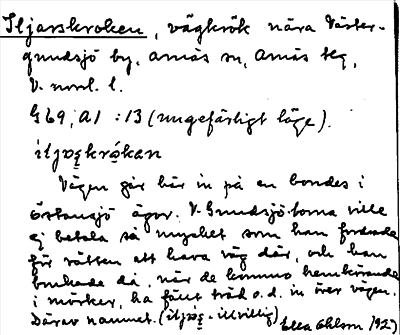 Iljarskroken, vägkrök nära Väster-
grundsjö by, Anäs sn, Anäs tlg,
V. norrl. l.
G69, A1 :13 (ungefärligt läge).
iljvskrókan
Vägen går här in på en bondes i
Östansjö ägor. V. Grundsjöborna ville
ej betala så mycket som han fordrade
för rätten att hava väg där, och han
brukade då, när de kommo hemkörande
i mörker, ha fällt träd o.d. in över vägen.
Därav namnet. (iljvs - illvillig)
Ella Ohlson 1927